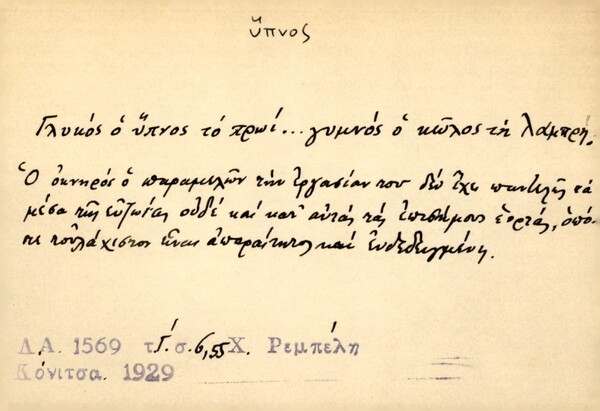 ὕπνος
Γλυκός ὁ ὕπνος τό πρωί... γυμνός ὁ κῶλος τή Λαμπρή.
Ὁ ὀκνηρός ὁ παραμελῶν τήν ἐργασίαν του δέν ἔχει παντελῆς τά
μέσα τῆς εὐζωΐας οὐδέ καί κατ' αὐτάς τάς ἐπισήμους ἑορτάς, ὁπό-
τε τοὐλάχιστον εἶναι ἀπαραίτητος καί ἐνδεδειγμένη.
Λ.Α. 1569 τ. Γ΄. σ. 6,55 Χ. Ρεμπέλη
Κόνιτσα. 1929